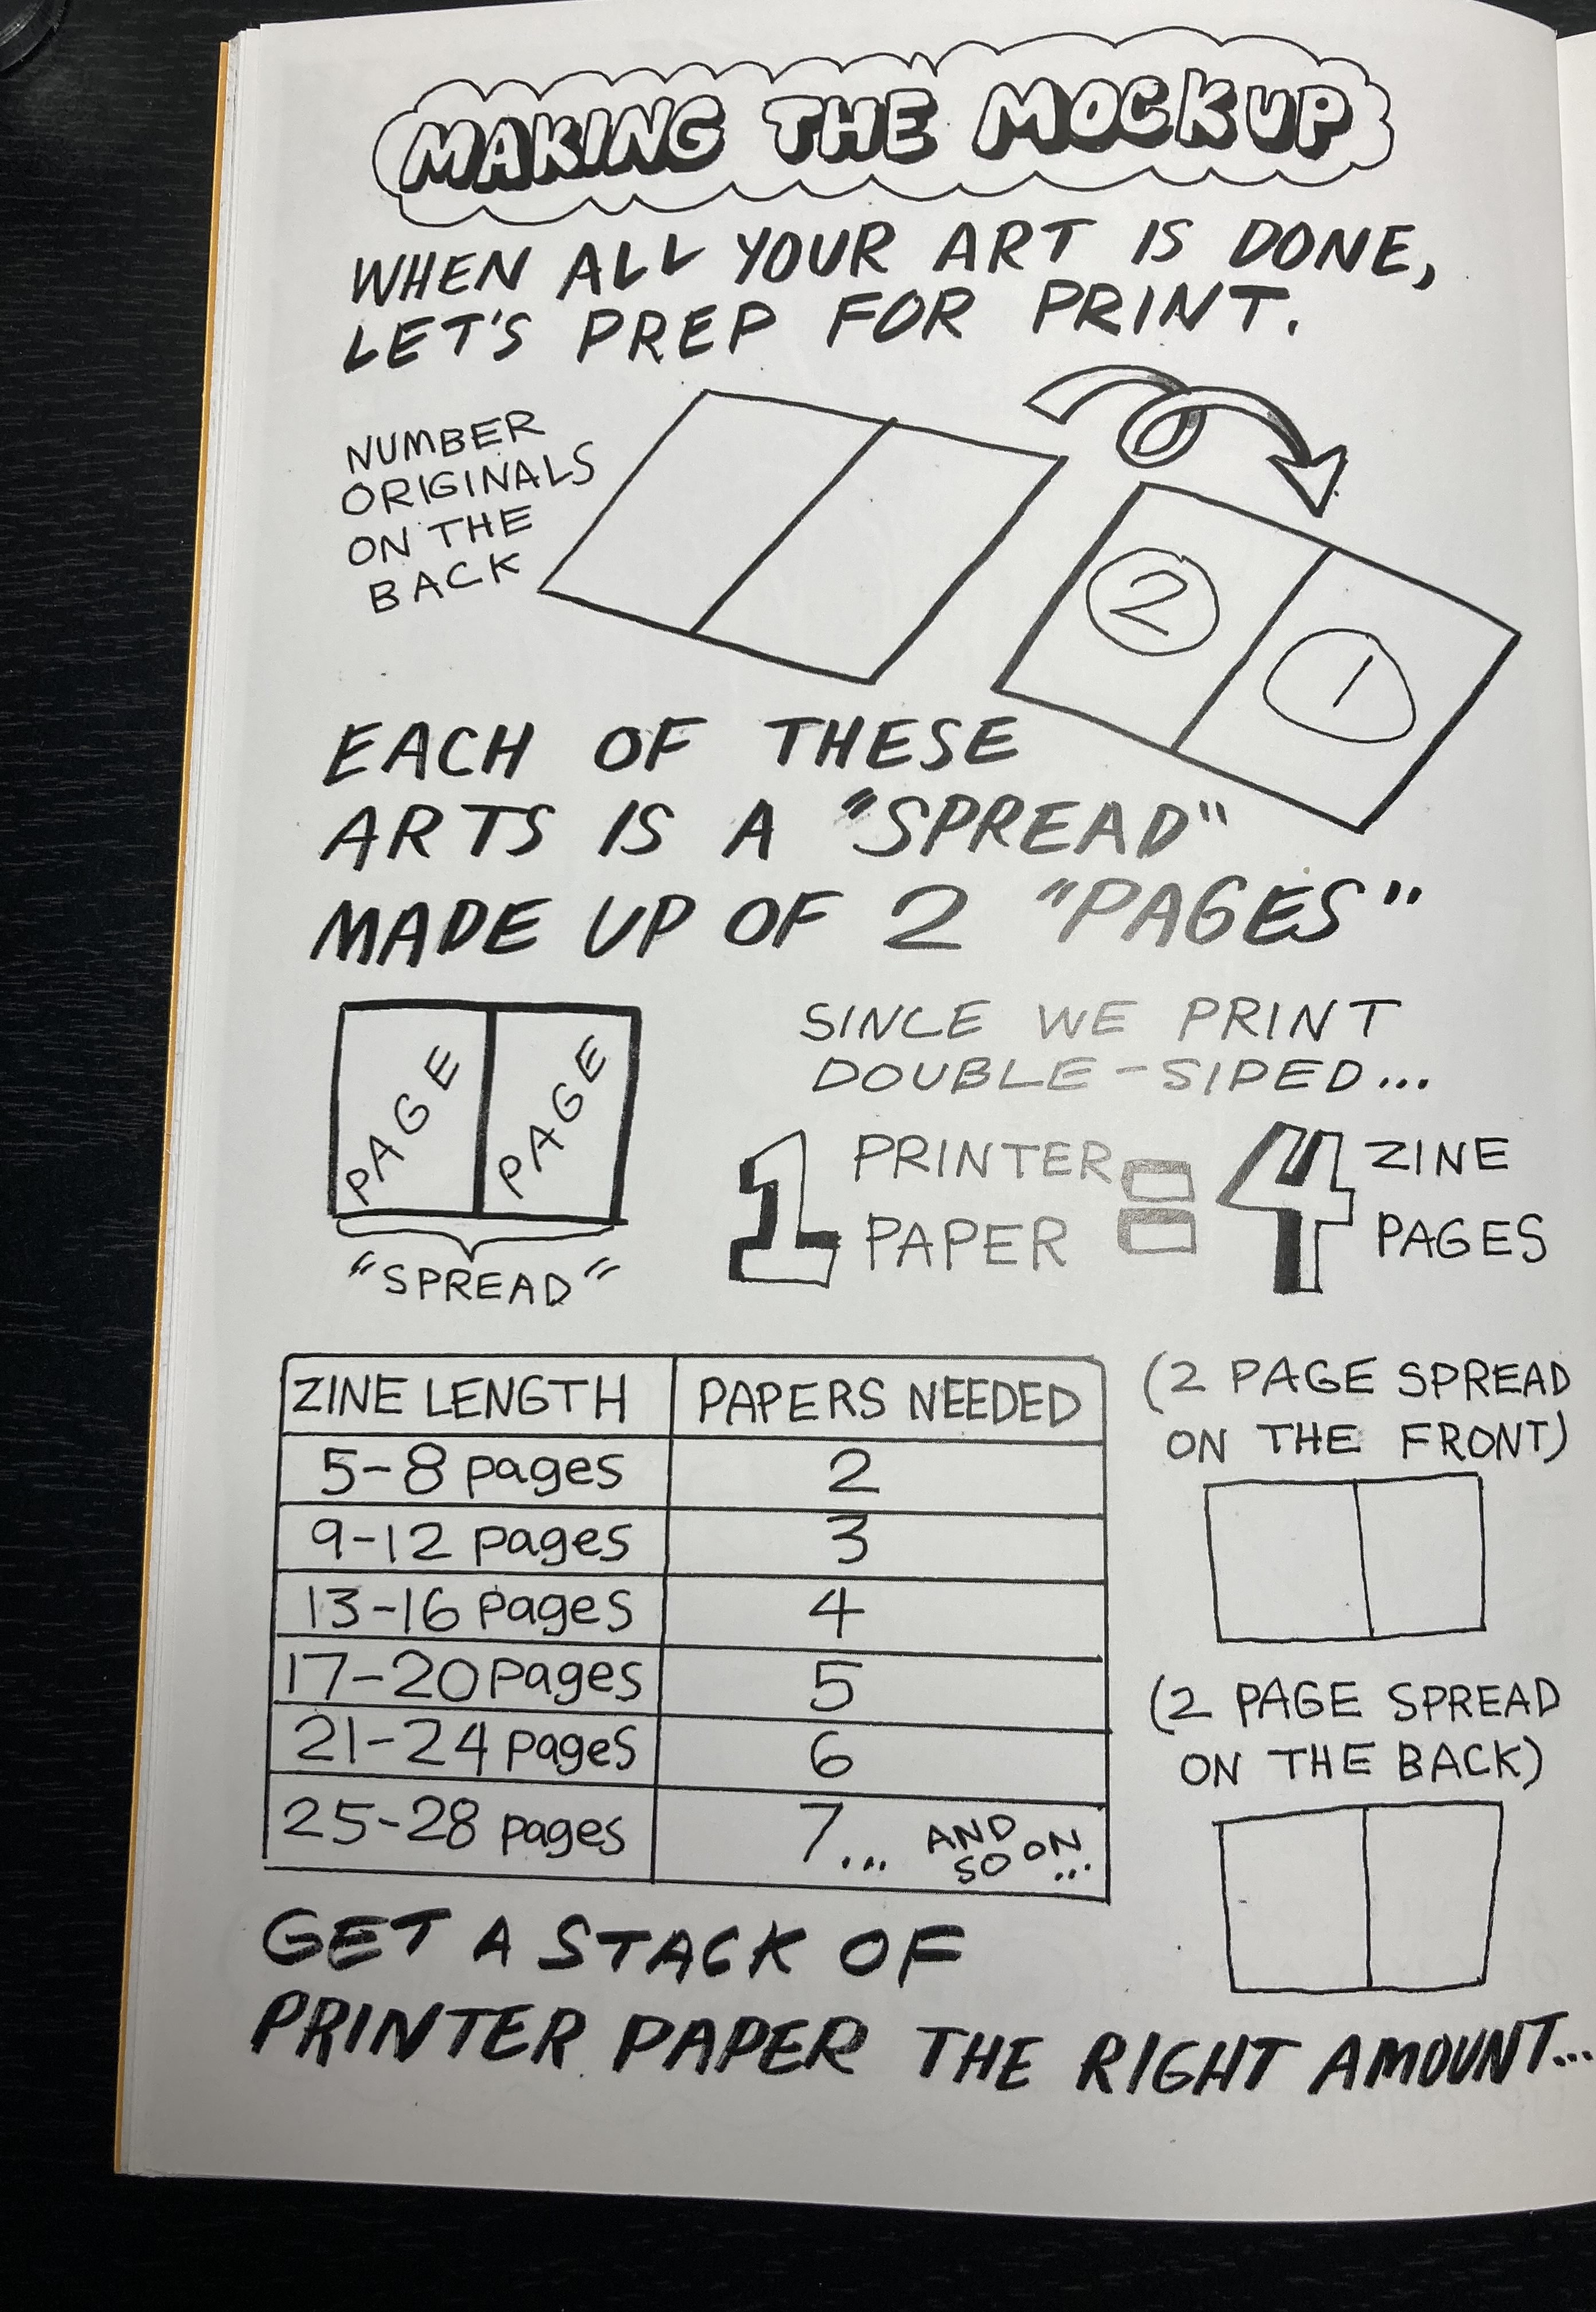 MAKING THE MOCKUP
WHEN ALL YOUR ART IS DONE,
LET'S PREP FOR PRINT.
NUMBER
ORIGINALS
ON THE
BACK
2
1
EACH OF THESE
ARTS IS A "SPREAD"
MADE UP OF 2 "PAGES"
PAGE PAGE
"SPREAD"
SINCE WE PRINT
DOUBLE-SIDED...
1 PRINTER PAPER = 4 ZINE PAGES
ZINE LENGTH PAPERS NEEDED
5-8 pages 2
9-12 pages 3
13-16 pages 4
17-20 pages 5
21-24 pages 6
25-28 pages 7... AND SO ON...
(2 PAGE SPREAD
ON THE FRONT)
(2 PAGE SPREAD
ON THE BACK)
GET A STACK OF
PRINTER PAPER THE RIGHT AMOUNT...